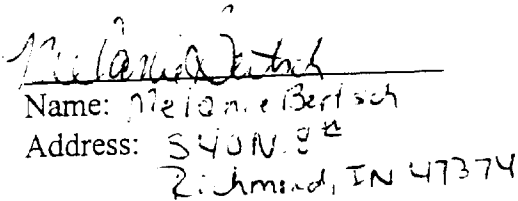 Melanie Bertsch
Name: Melanie Bertsch
Address: 540 N. 8th
Richmond, IN 47374